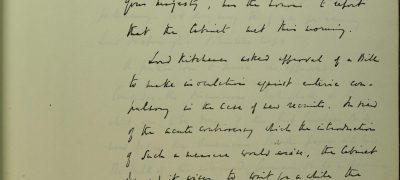 Your Majesty, has the honour to report
that the Cabinet met this morning.
Lord Kitchener asked approval of a Bill
to make inoculation against enteric com-
pulsory in the case of new recruits. In view
of the acute controversy which the introduction
of such a measure would arise, the Cabinet
it wiser to wait for a while the